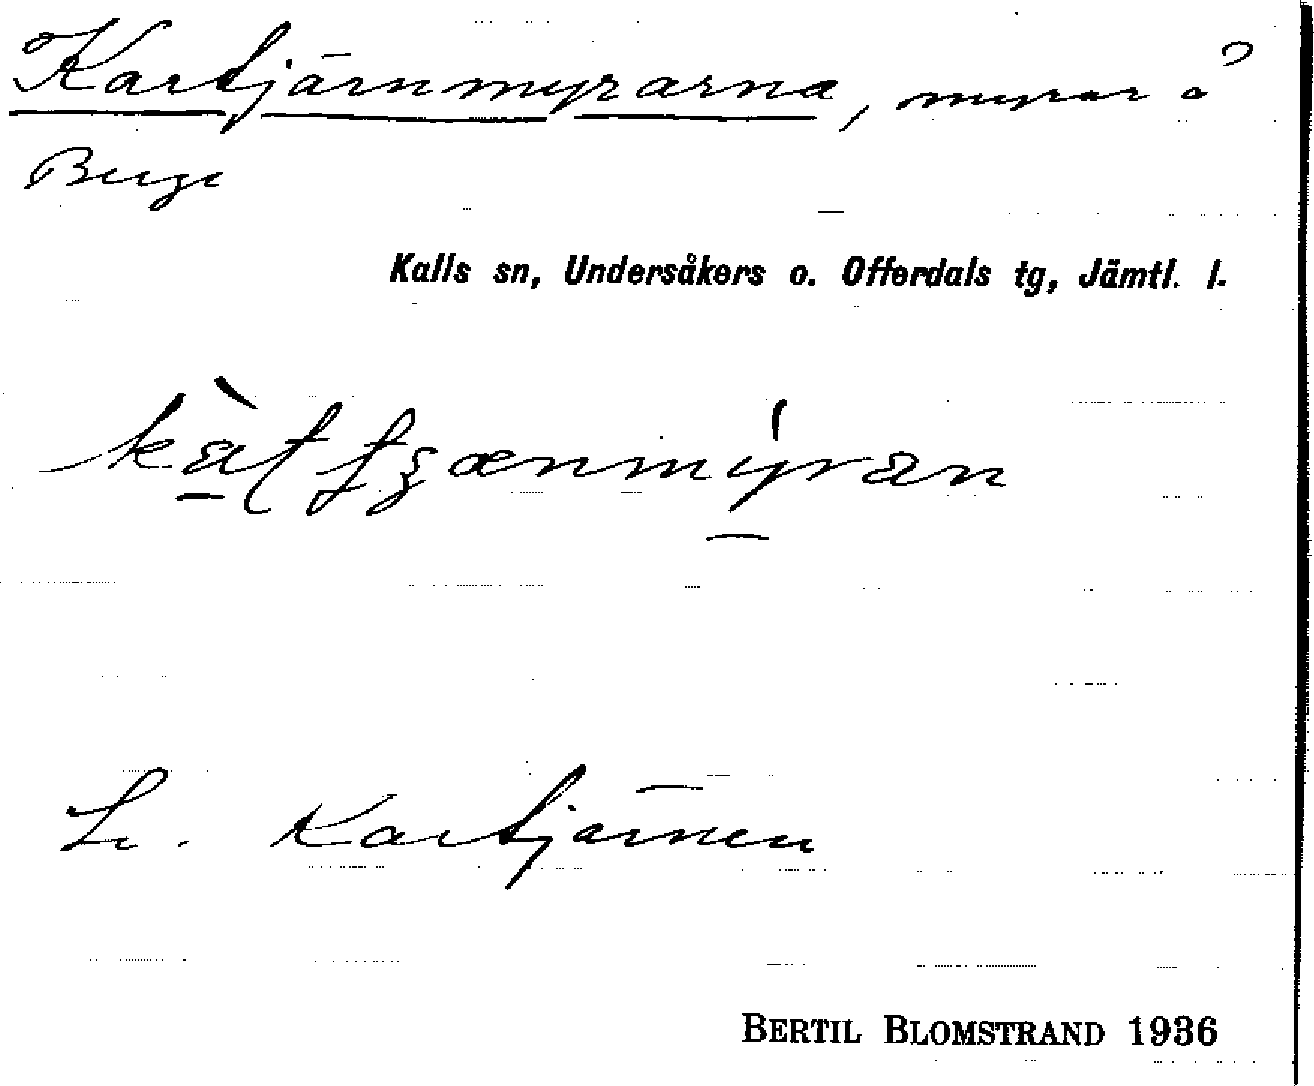 Kartjärnmyrarna, myrar å
Berge
Kalls sn, Undersåkers o. Offerdals tg, Jämtl. l.
Se. Kartjärnen
BERTIL BLOMSTRAND 1936